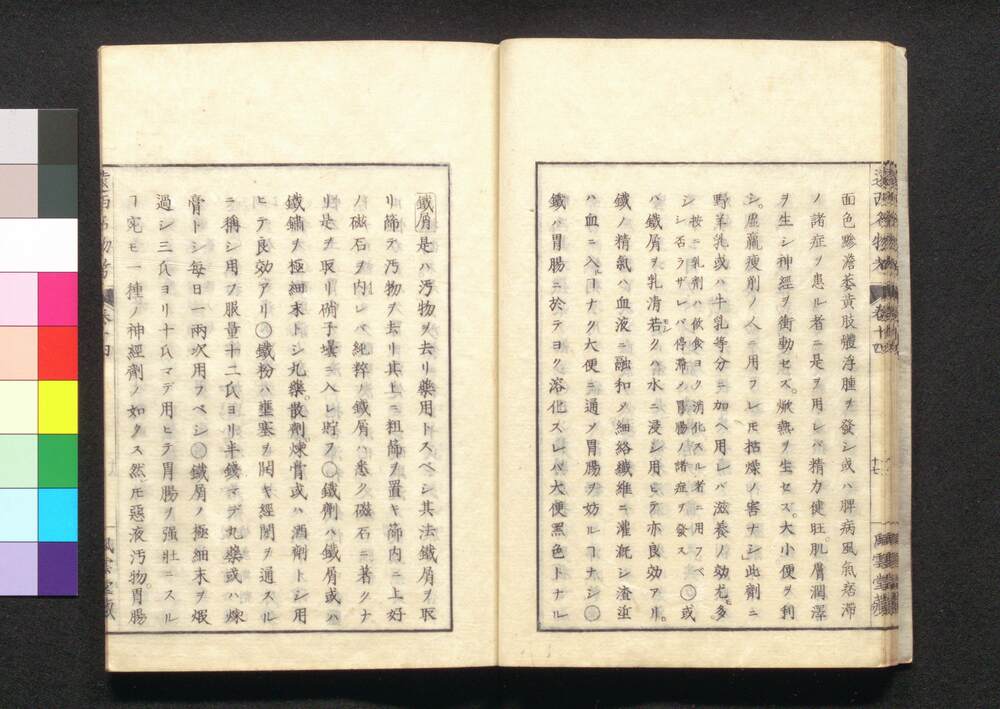 面色黲澹萎黄肢體浮腫ヲ發シ或ハ脾病風氣痞滞
ノ諸症ヲ患ル者ニ是ヲ用レバ精力健旺肌膚潤澤
ヲ生シ神經ヲ衝動セズ。焮熱ヲ生セズ。大小便ヲ利
シ。虚羸瘦削ノ人ニ用フレ𪜈枯燥ノ害ナシ」此劑ニ
野羊乳或ハ牛乳等分ニ加ヘ用レバ滋養ノ効尤多
シ 按ニ乳劑ハ飲食ヨク消化スル者ニ用フベシ否ラザレバ停滞ノ胃腸ノ諸症ヲ發ス ○或
ハ鐵屑ヲ乳清若クハ水ニ浸シ用ヒテ亦良効アリ。
鐵ノ精氣ハ血液ニ融和シ細絡纖維ニ灌漑シ渣滓
ハ血ニ入ルヿナク大便ニ通シ胃腸ヲ妨ルヿナシ○
鐵ハ胃腸ニ於テヨク溶化スレバ大便黑色トナル
遠西名物考 巻十四 十七 風雲堂藏
鐵屑是ハ汚物ヲ去リ藥用トスベシ其法鐵屑ヲ取
リ篩テ汚物ヲ去リ其上ニ粗篩ヲ置キ篩内ニ上好
ノ磁石ヲ内レバ純粹ノ鐵屑ハ悉ク磁石ニ著クナ
リ是ヲ取リ硝子壜ニ入レ貯フ○鐵劑ハ鐵屑或ハ
鐵鏽ヲ極細末トシ丸藥。散劑。煉膏或ハ酒劑トシ用
ヒテ良効アリ○鐵粉ハ壅塞ヲ開キ經閉ヲ通スル
ヲ稱シ用フ服量十二氏ヨリ半錢マデ丸藥或ハ煉
膏トシ每日一兩次用フベシ○鐵屑ノ極細末ヲ煅
過シ三氏ヨリ十氏マデ用ヒテ胃腸ヲ强壯ニスル
ヿ宛モ一種ノ神經劑ノ如ク然𪜈惡液汚物胃腸